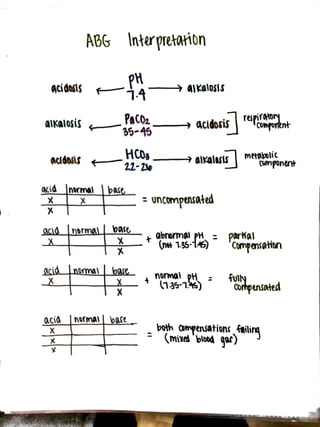 ABG Interpretation
pH
acidosis ← 7.4 → alkalosis
alkalosis ← PaCO2 35-45 → acidosis ] respiratory component
acidosis ← HCO3 22-26 → alkalosis ] metabolic component
acid | normal | base
x | x |
x | |
= uncompensated
acid | normal | base
x | | x
| | x
+ abnormal pH (not 7.35-7.45) = partial compensation
acid | normal | base
x | | x
| | x
+ normal pH (7.35-7.45) = fully compensated
acid | normal | base
x
x
x
= both compensations failing (mixed blood gas)